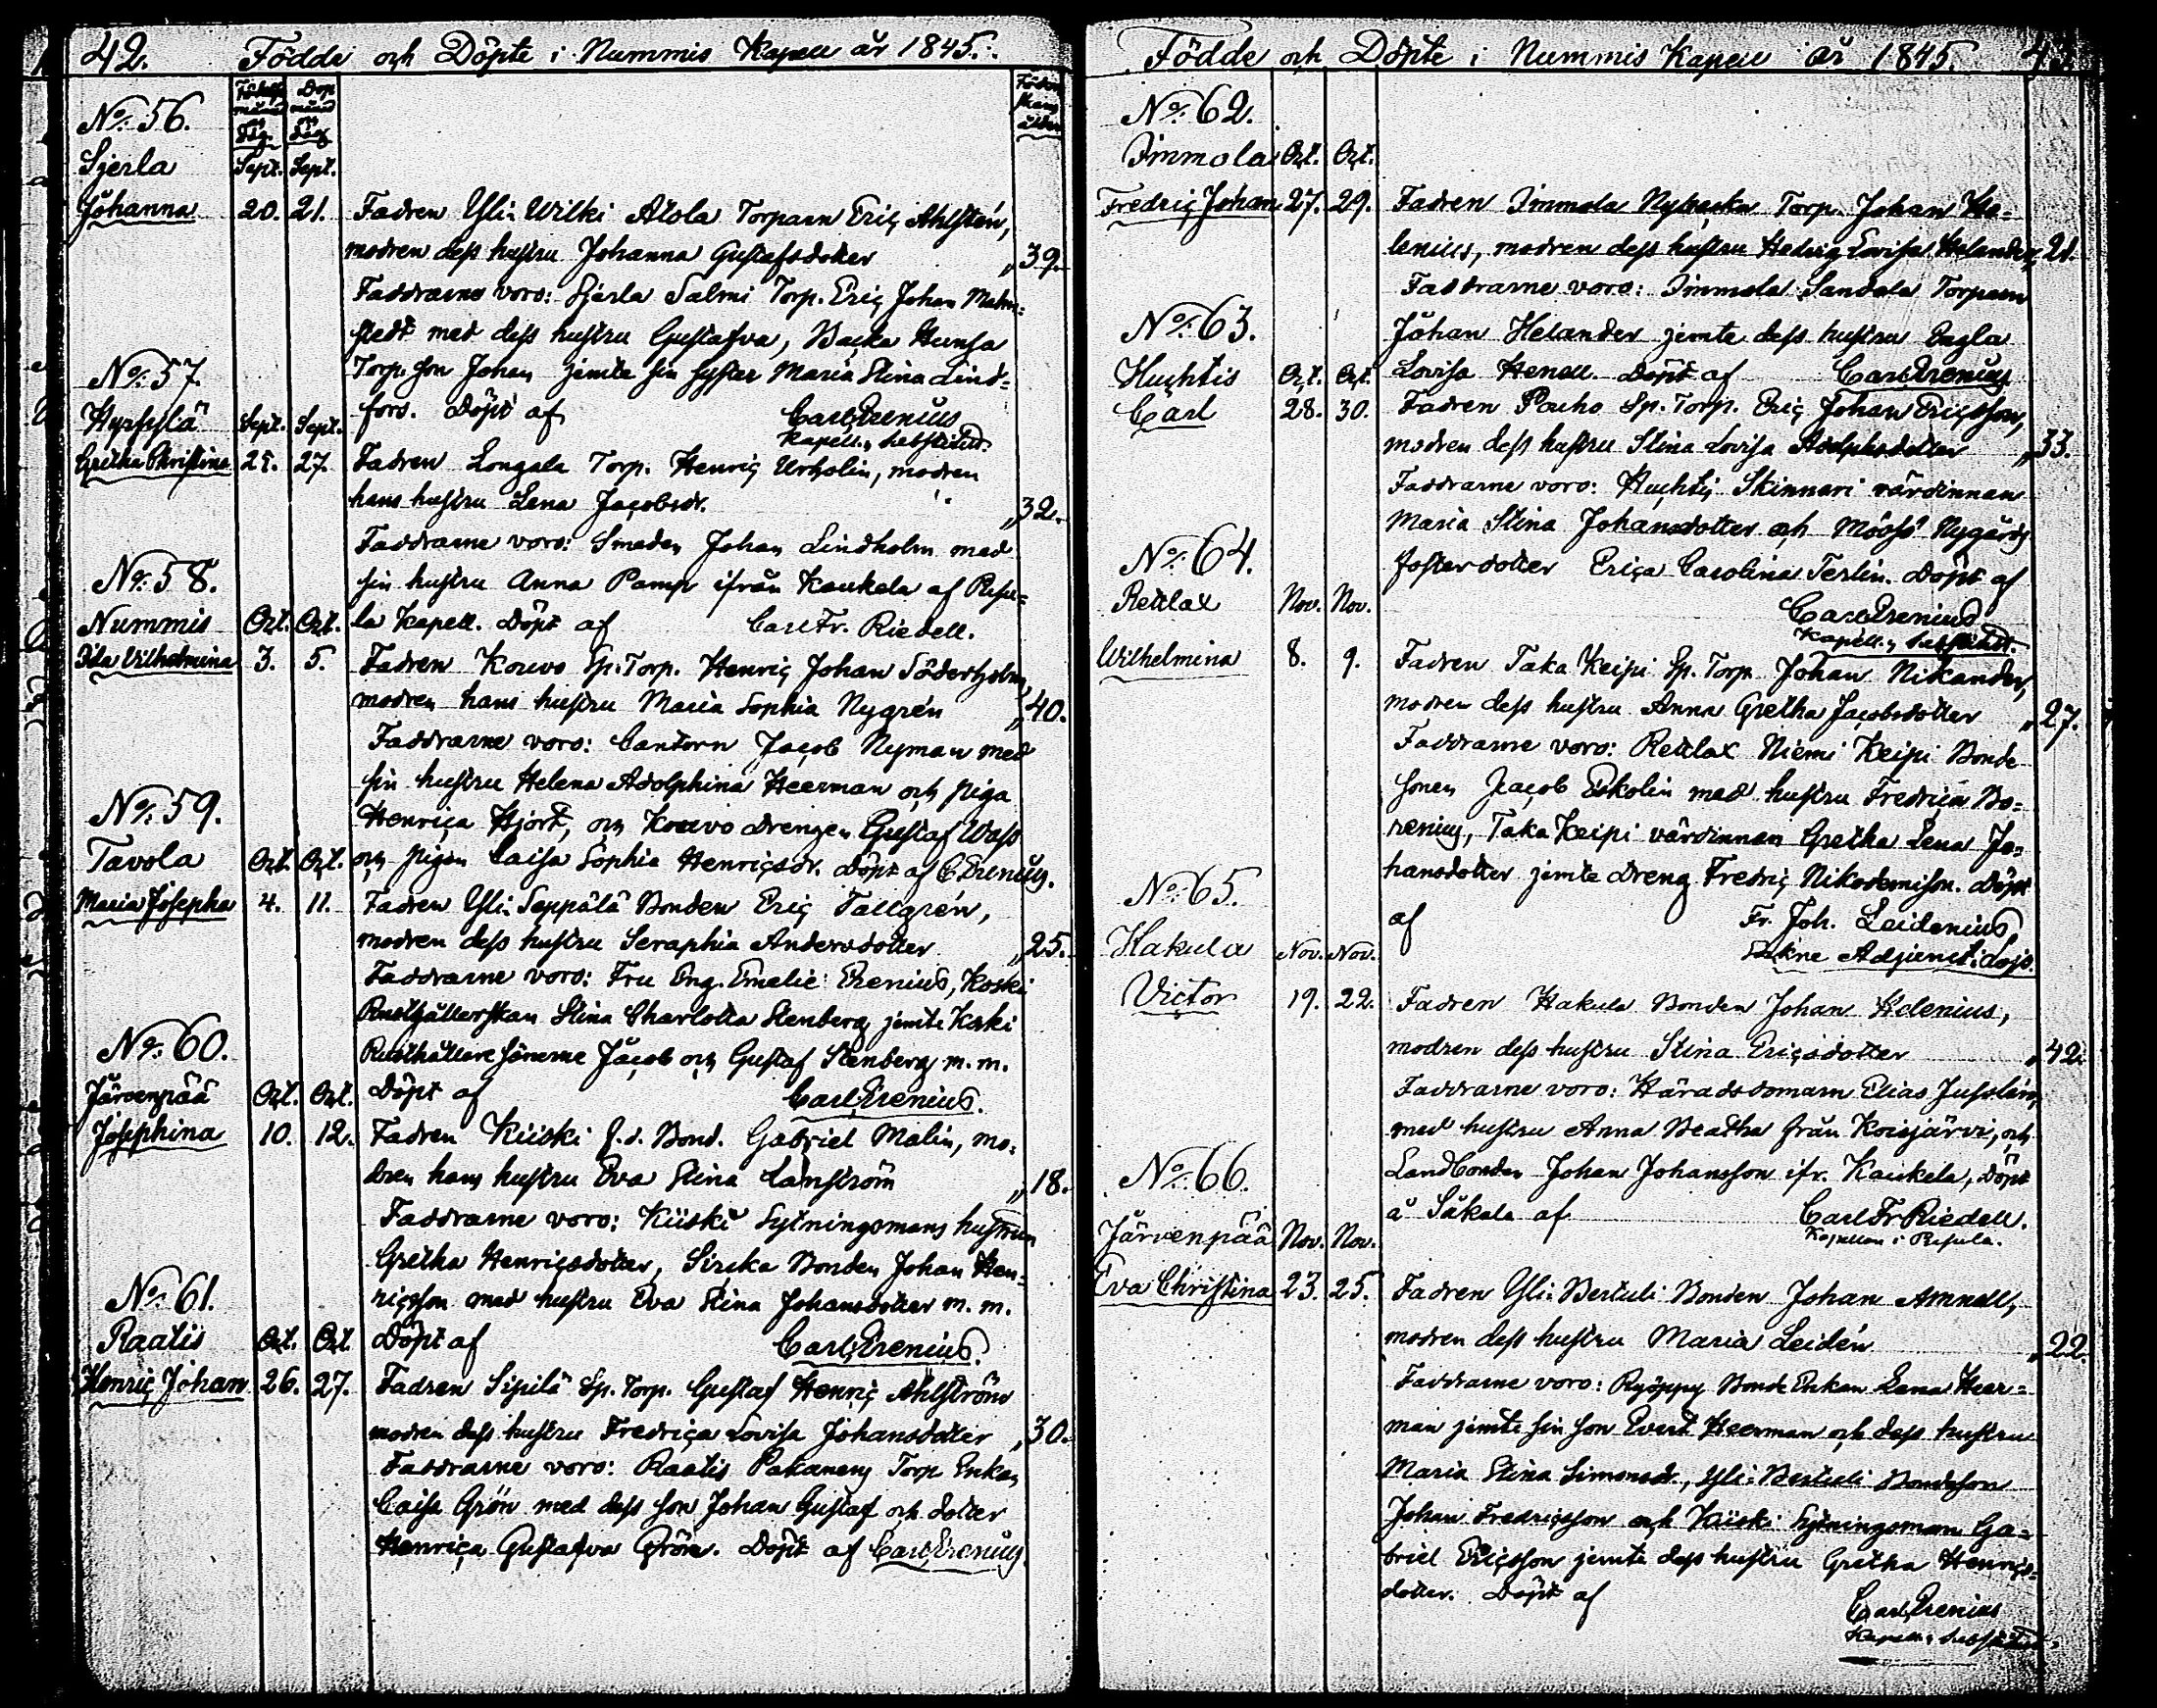 42. Födde och Döpte i Nummis Kapell år 1845.
Födelse månad och dag. Dop månad och dag Moderns ålder
No. 56.
Sjerla Sept. Sept.
Johanna 20. 21. Fadren Yli-Wilki Alola Torparn Eriç Ahlstén,
modren dess hustru Johanna Gustafsdotter „39.
Faddrarne voro: Sjerla Salmi Torp. Eriç Johan Malm-
stedt med dess hustru Gustafva, Backa Hunsa
No. 57.
Torp. son Johan jemte sin syster Maria Stina Lind-
Hyrsylä Sept. Sept. fors. Döpt af Carl Prenius
Kapell.s substitut.
Gretha Christina 25. 27. Fadren Longala Torp. Henriç Urholin, modren
hans hustru Lena Jaçobsdr. „32.
Faddrarne voro: Smeden Johan Lindholm med
No. 58.
sin hustru Anna Pamp ifrån Kaukela af Pusu-
Nummis Oct. Oct. la Kapell. Döpt af Carl Fr. Riedell.
Ida Wilhelmina 3. 5. Fadren Kouvo Sp. Torp. Henriç Johan Söderholm,
modren hans hustru Maria Sophia Nygrén „40.
Faddrarne voro: Cantorn Jaçob Nyman med
sin hustru Helena Adolphina Heerman och piga
No. 59.
Henriça Hjort, och Kouvo drengen Gustaf Wass
Tavola Oct. Oct. och pigan Caisa Sophia Henriçsdr. Döpt af C. Prenius.
Maria Josepha 4. 11. Fadren Yli-Seppälä Bonden Eriç Tallgrén,
modren dess hustru Seraphia Andersdotter „25.
Faddrarne voro: Fru Eng. Emelie Prenius, Koski
Rusthållerskan Stina Charlotta Stenberg jemte Koski
No. 60.
Rusthållare Sönerne Jaçob och Gustaf Stenberg m. m.
Järvenpää Oct. Oct. Döpt af Carl Prenius.
Josephina 10. 12. Fadren Kiiski f.d. Bond. Gabriel Malin, mo-
dren hans hustru Eva Stina Lanström „18.
Faddrarne voro: Kiiski Sytningsmans hustrun
Gretha Henriçsdotter, Sircka Bonden Johan Hen-
No. 61.
riçsson med hustru Eva Stina Johansdotter m. m.
Raatis Oct. Oct. Döpt af Carl Prenius.
Henriç Johan 26. 27. Fadren Sipilä Sp. Torp. Gustaf Henriç Ahlström
modren dess hustru Fredriça Lovisa Johansdotter „30.
Faddrarne voro: Raatis Pakanens Torp Enkan
Caisa Grön med dess son Johan Gustaf och dotter
Henriça Gustafva Grön. Döpt af Carl Prenius.
Födde och Döpte i Nummis Kapell år 1845. 43.
No. 62.
Immola Oct. Oct.
Fredriç Johan 27. 29. Fadren Immola Nybacka Torp. Johan He-
lenius, modren dess hustru Hedvig Lovisa Helander, „21.
Faddrarne voro: Immola Sandala Torparn
No. 63.
Johan Helander jemte dess hustru Eagla
Huchtis Oct. Oct. Lovisa Henell. Döpt af Carl Prenius
Carl 28. 30. Fadren Pouho Sp. Torp. Eriç Johan Eriçsson,
modren dess hustru Stina Lovisa Adolphsdotter „33.
Faddrarne voro: Huchtis Skinnari värdinnan
Maria Stina Johansdotter och Möösö Nygårds
No. 64.
fosterdotter Eriça Carolina Terlin. Döpt af
Retlax Nov. Nov. Carl Prenius
Kapell.s substitut.
Wilhelmina 8. 9. Fadren Taka Keipi Sp. Torp Johan Nikander,
modren dess hustru Anna Gretha Jaçobsdotter „27.
Faddrarne voro: Retlax Niemi Keipi Bonde
sonen Jacob Eskolin med hustru Fredrica Bo-
renius, Taka Keipi värdinnan Gretha Lena Jo-
hansdotter jemte Dreng Fredriç Nikodemison. Döpt
No. 65.
af Fr. Joh. Leidenius
Hakula Nov. Nov. Sakne Adjienct i Lojo.
Victor 19. 22. Fadren Hakula Bonden Johan Helenius,
modren dess hustru Stina Eriçsdotter „42.
Faddrarne voro: Häradsdomarn Elias Jusslein,
med hustru Anna Beatha från Koisjärvi, och
No. 66.
Landbonden Johan Johansson ifr. Kaukela, Döpt
å Säkala af Carl Fr Riedell.
Kapellan i Pusula.
Järvenpää Nov. Nov.
Eva Christina 23. 25. Fadren Yli-Bertuli Bonden Johan Amnell,
modren dess hustru Maria Leidén „22.
Faddrarne voro: Ryöppy Bonde Enkan Lena Heer-
man jemte sin son Evert Heerman och dess hustru
Maria Stina Simonsdr., Yli-Bertuli Bondeson
Johan Fredriçsson och Kiiski Sytningsman Ga-
briel Eriçsson jemte dess hustru Gretha Henriçs-
dotter. Döpt af Carl Prenius
Kapell.s substitut.